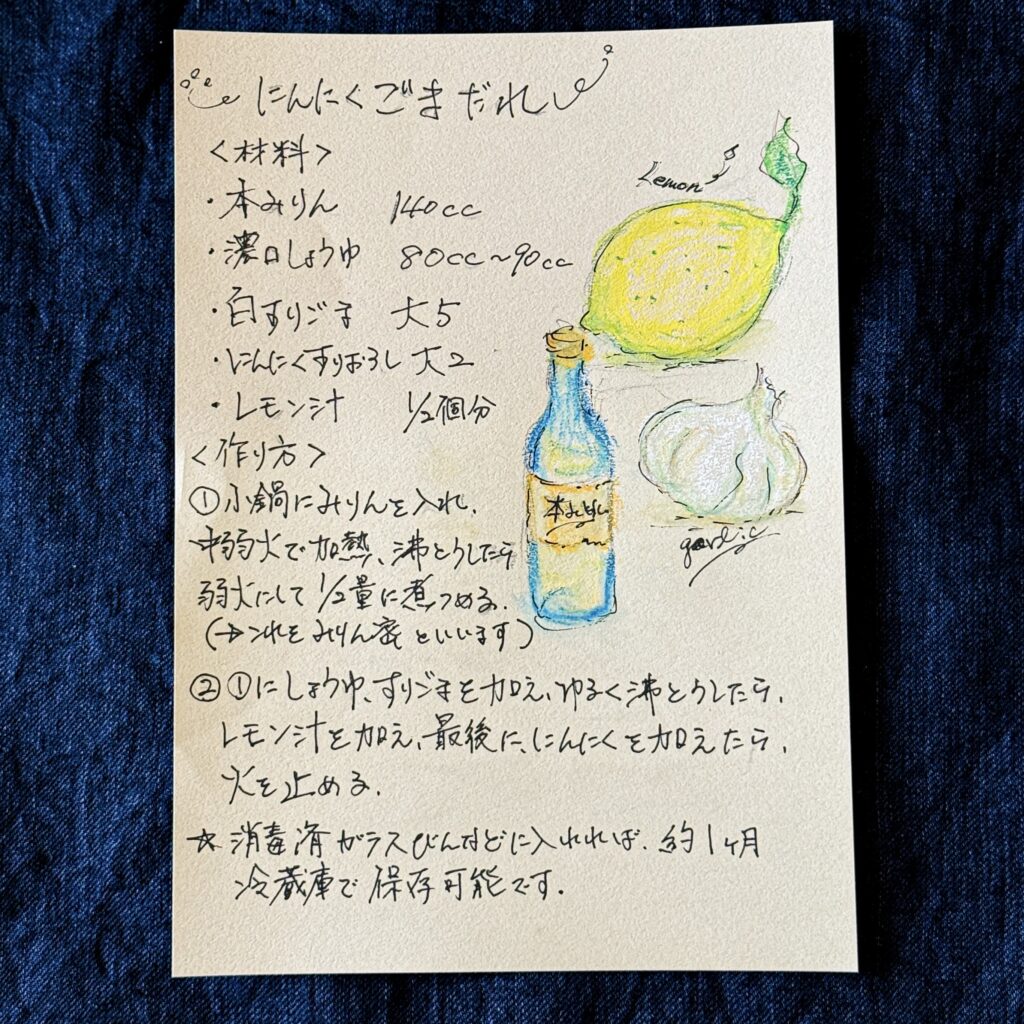 にんにくごまだれ
<材料>
・本みりん 140cc
・濃口しょうゆ 80cc〜90cc
・白すりごま 大5
・にんにくすりおろし 大2
・レモン汁 1/2個分
<作り方>
①小鍋にみりんを入れ、
中弱火で加熱、沸とうしたら
弱火にして1/2量に煮つめる。
(→これをみりん蜜といいます)
②①にしょうゆ、すりごまを加え、ゆるく沸とうしたら、
レモン汁を加え、最後に、にんにくを加えたら、
火を止める。
☆消毒済ガラスびんなどに入れれば、約1ヶ月
冷蔵庫で保存可能です。
Lemon
本みりん
garlic